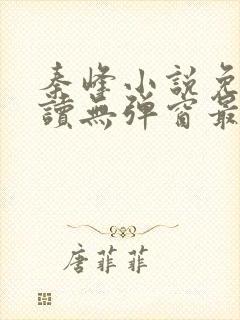 秦峰小説免
讀無彈窗最
唐菲菲